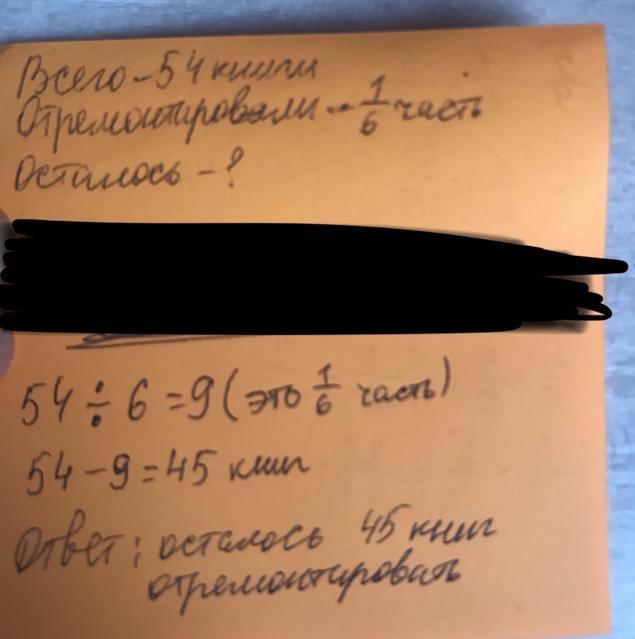 Всего - 54 книги
Отремонтировали - 1/6 часть
Осталось - ?
54 ÷ 6 = 9 (это 1/6 часть)
54 - 9 = 45 книг
Ответ: осталось 45 книг
отремонтировать